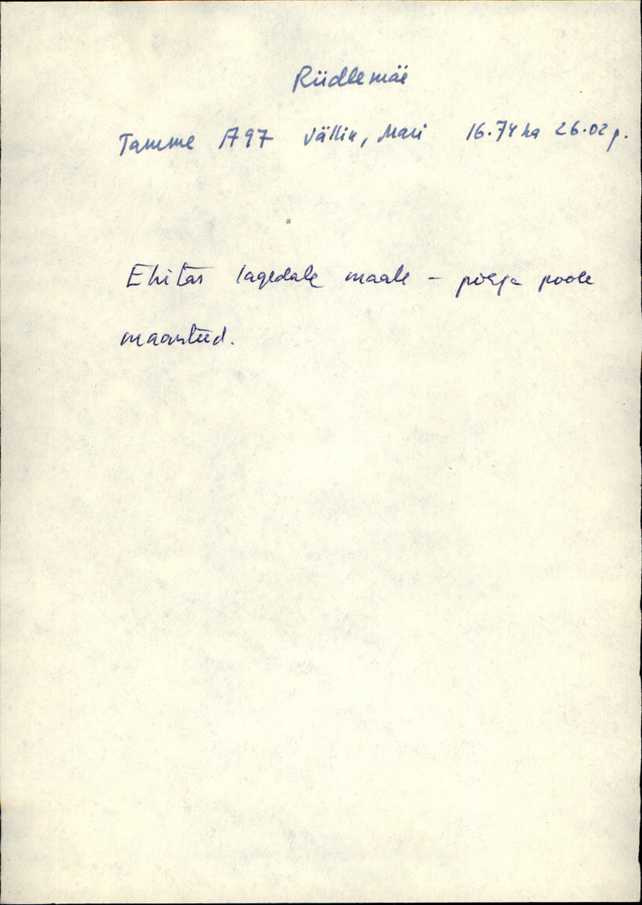 Riidlemäe
Tamme A97 Vällik, Mari 16.74 ha 26.02 p.
Ehitas lagedale maale – põhja poole
maanteed.